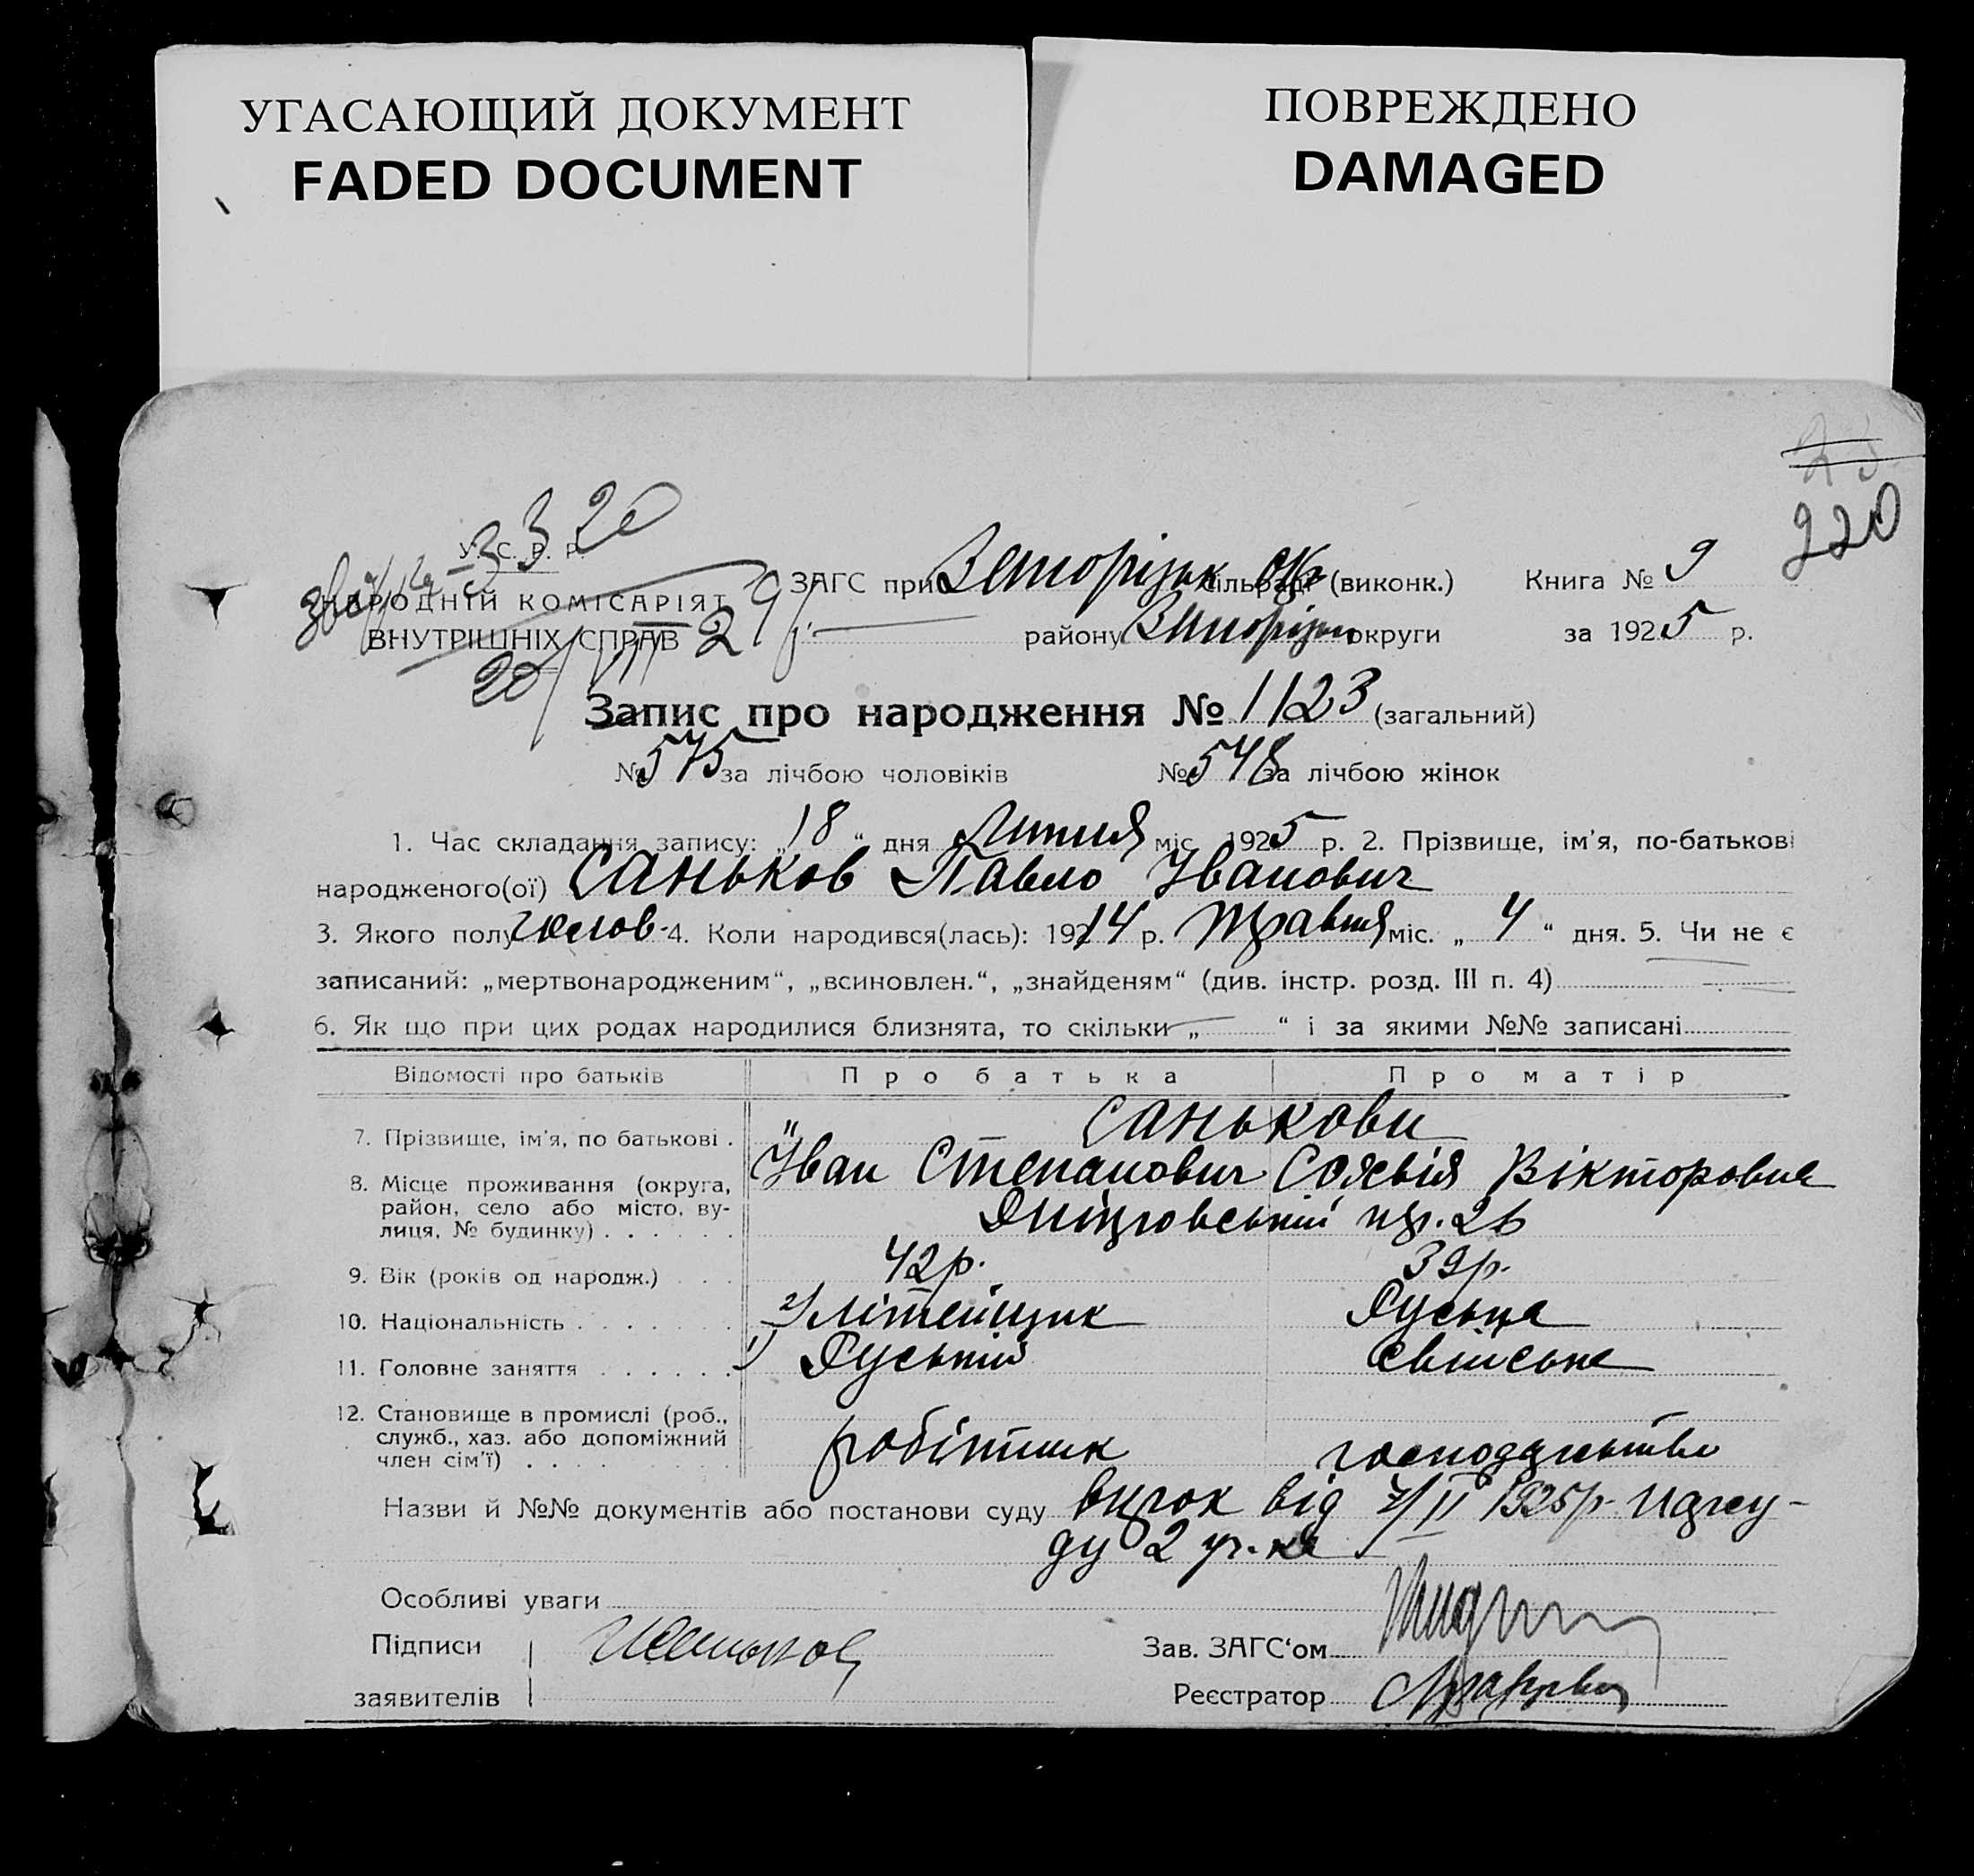 УГАСАЮЩИЙ ДОКУМЕНТ
FADED DOCUMENT
ПОВРЕЖДЕНО
DAMAGED
220
У. С. Р. Р.
3320
НАРОДНІЙ КОМІСАРІЯТ
ВНУТРІШНІХ СПРАВ
20/VII 29 р.
ЗАГС при Запорізьк Окр сільраді (виконк.) Книга № 9
району Запорізьк округи за 1925 р.
Запис про народження № 1123 (загальний)
№ 575 за лічбою чоловіків № 548 за лічбою жінок
1. Час складання запису: „18“ дня Липня міс. 1925 р. 2. Прізвище, ім'я, по-батькові
народженого(ої) Саньков Павло Іванович
3. Якого полу чолов. 4. Коли народився(лась): 1914 р. Травня міс. „4“ дня. 5. Чи не є
записаний: „мертвонародженим“, „всиновлен.“, „знайденям“ (див. інстр. розд. III п. 4)
6. Як що при цих родах народилися близнята, то скільки „ “ і за якими №№ записані
Відомості про батьків Про батька Про матір
7. Прізвище, ім'я, по батькові . Санькови
Іван Степанович Софія Вікторовна
8. Місце проживання (округа, район, село або місто, вулиця, № будинку) пр. 26
9. Вік (років од народж.) 42р. 39р.
10. Національність 2) літейщик Руська
11. Головне заняття 1) Руський Свійське
12. Становище в промислі (роб., служб., хаз. або допоміжний член сім'ї) робітник господарство
Назви й №№ документів або постанови суду виток від 7/II 1925р. Нарсу-
ду 2 уч-ка
Особливі уваги
Підписи
заявителів
Зав. ЗАГС'ом
Реєстратор